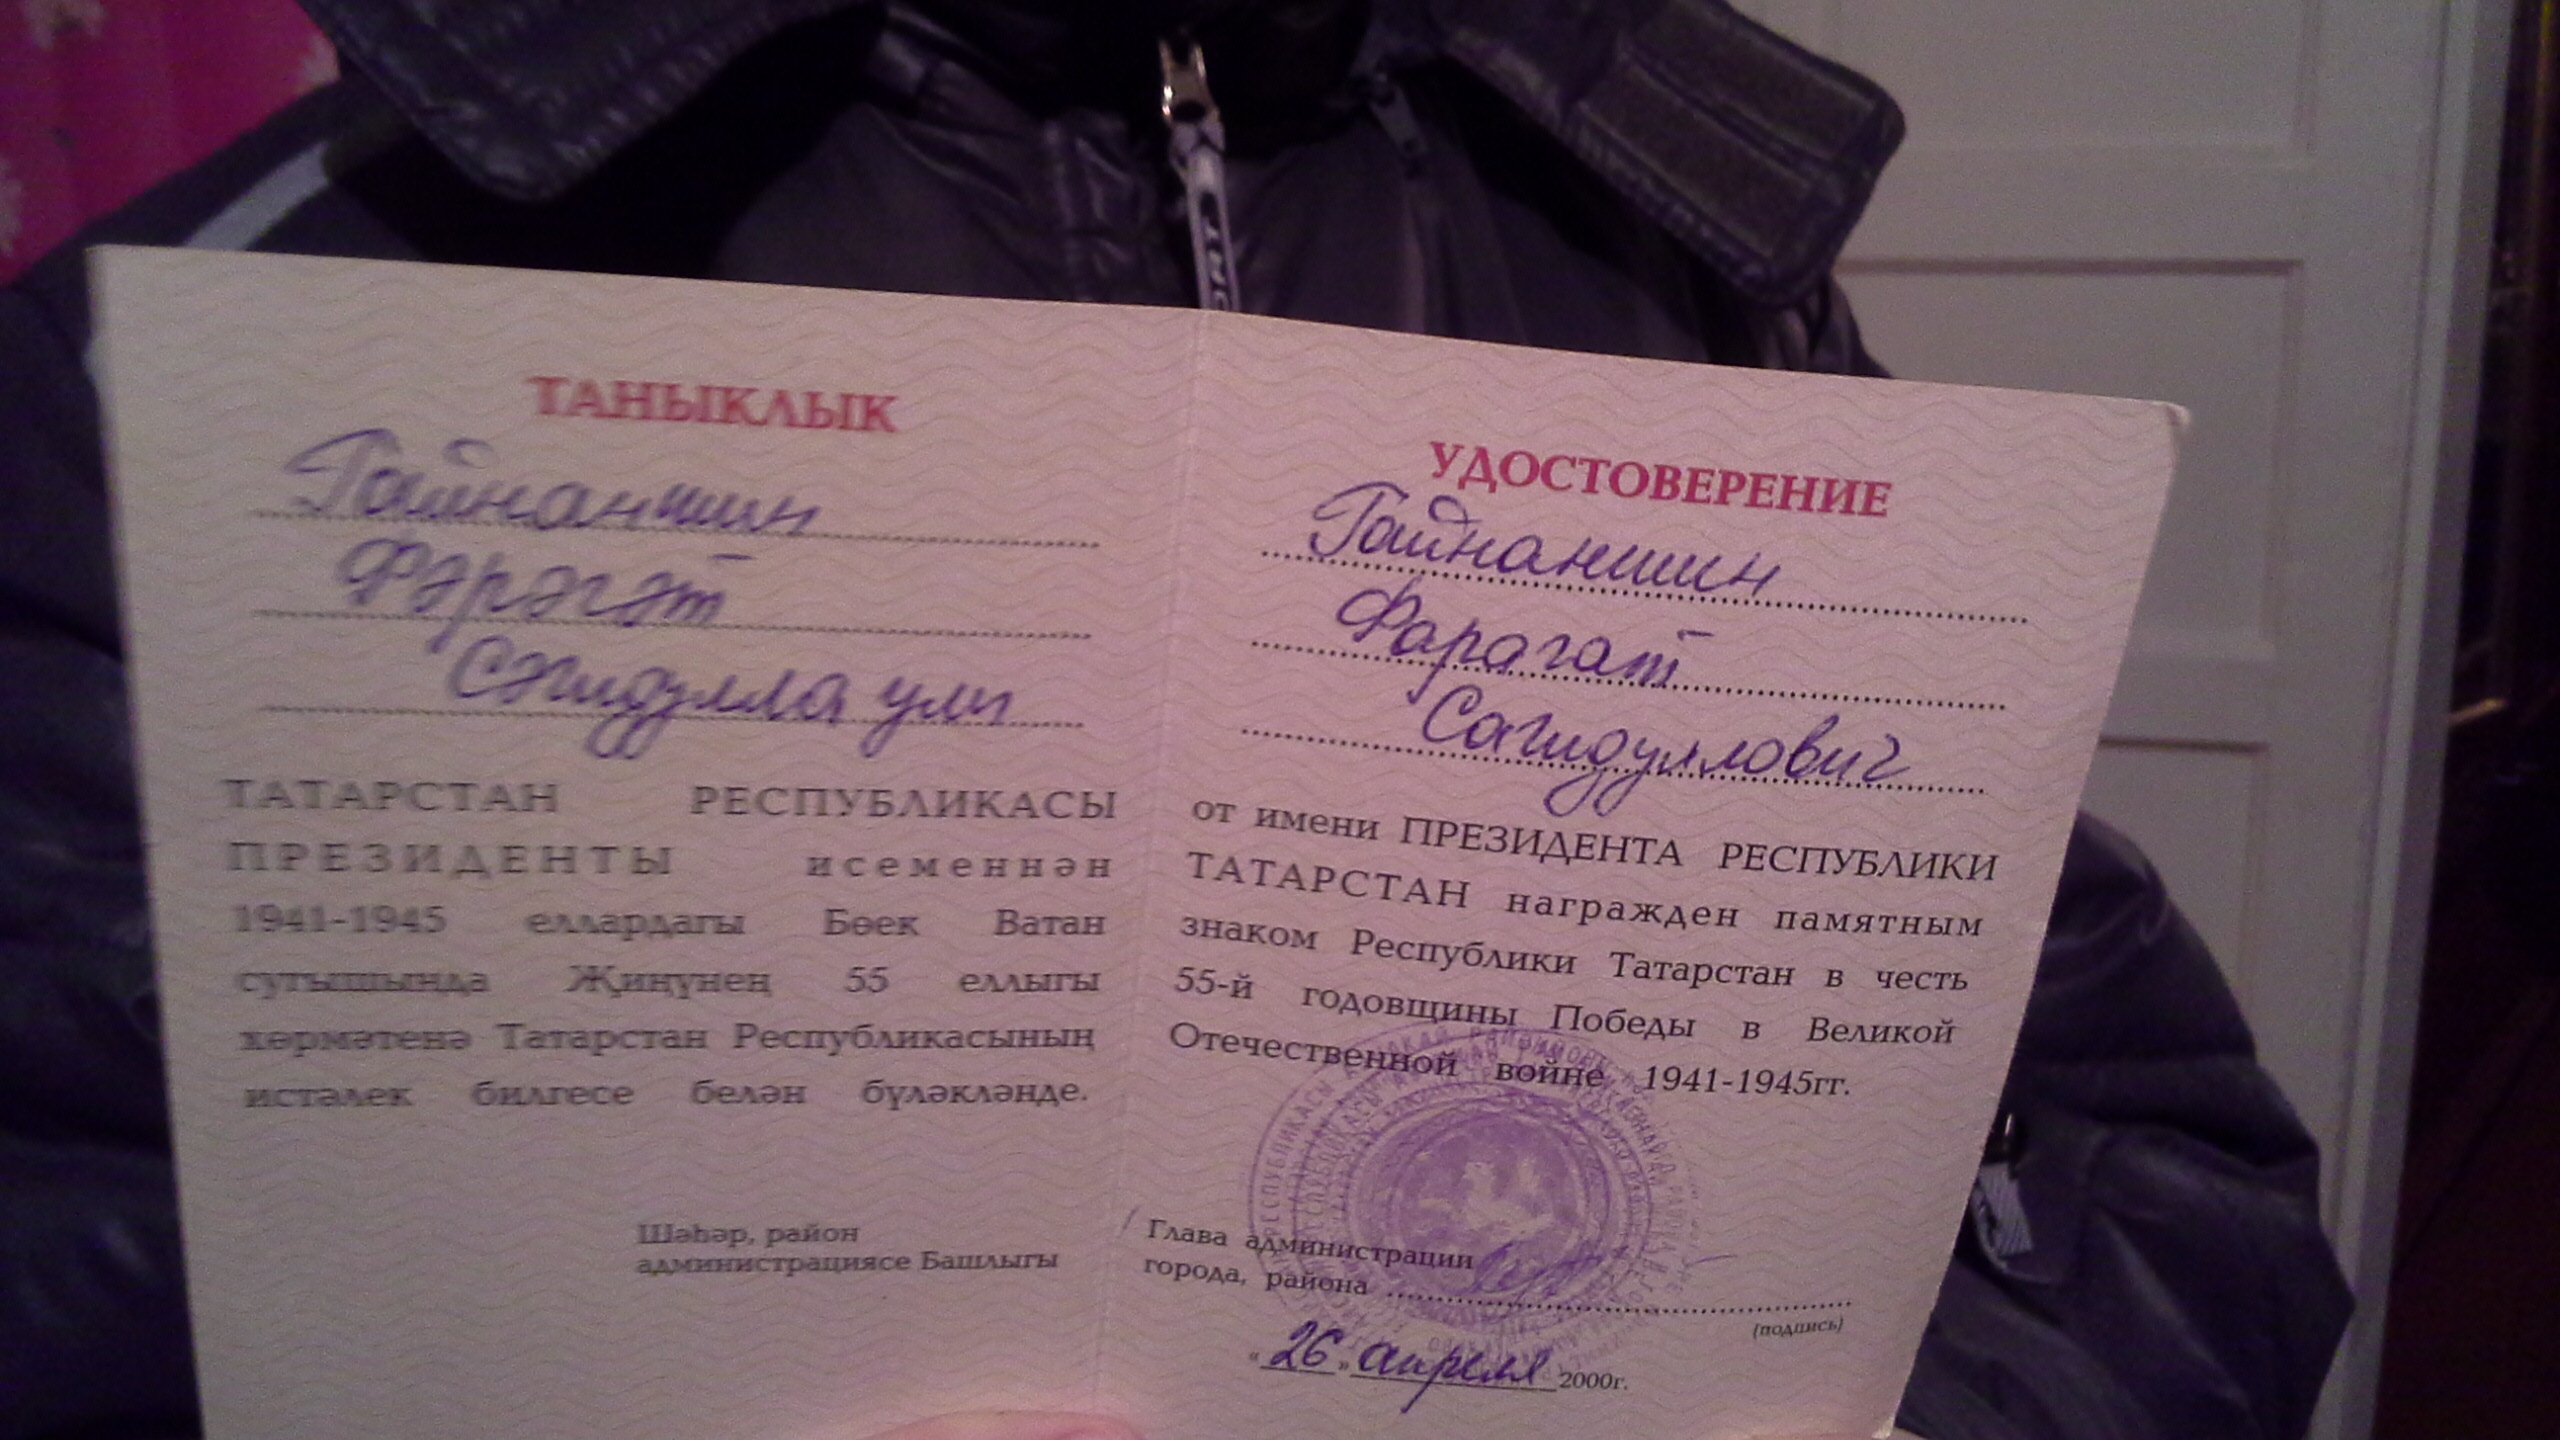 ТАНЫКЛЫК
Гайнаншин
Фәрәгәт
Сәгидулла улы
ТАТАРСТАН РЕСПУБЛИКАСЫ
ПРЕЗИДЕНТЫ исеменнән
1941-1945 еллардагы Бөек Ватан
сугышында Җиңүнең 55 еллыгы
хөрмәтенә Татарстан Республикасының
истәлек билгесе белән бүләкләнде.
Шәһәр, район
администрациясе Башлыгы
УДОСТОВЕРЕНИЕ
Гайнаншин
Фарагат
Сагидуллович
от имени ПРЕЗИДЕНТА РЕСПУБЛИКИ
ТАТАРСТАН награжден памятным
знаком Республики Татарстан в честь
55-й годовщины Победы в Великой
Отечественной войне 1941-1945гг.
Глава администрации
города, района
(подпись)
"26" апреля 2000г.